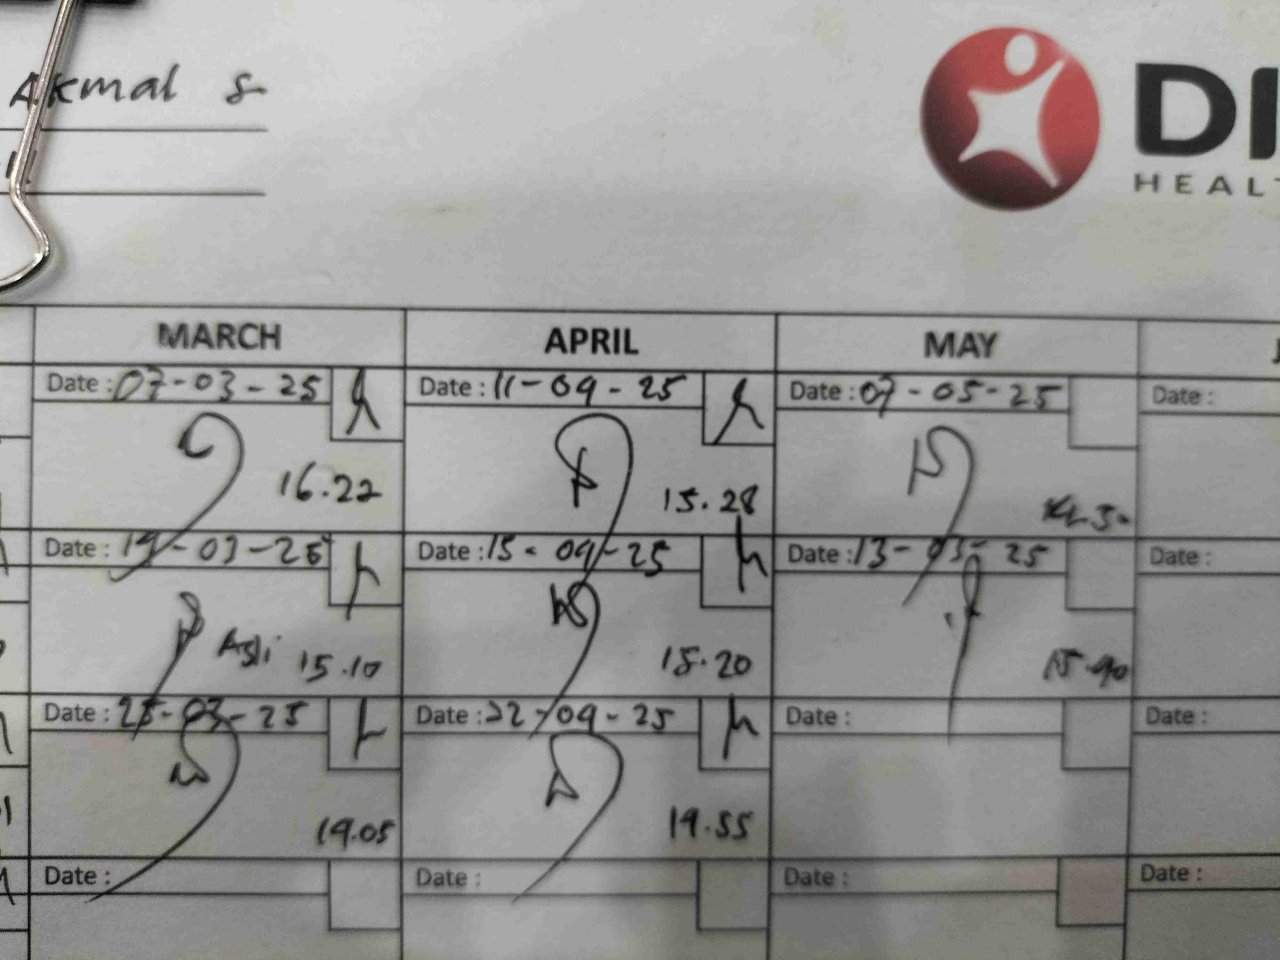 Akmal S
DI
HEALT
MARCH APRIL MAY
Date : 07-03-25 Date : 11-04-25 Date : 07-05-25 Date :
16.22 15.28
Date : 19-03-25 Date : 15-04-25 Date : 13-05-25 Date :
Asli 15.10 15.20 15.40
Date : 25-03-25 Date : 22-04-25 Date : Date :
14.05 14.55
Date : Date : Date : Date :